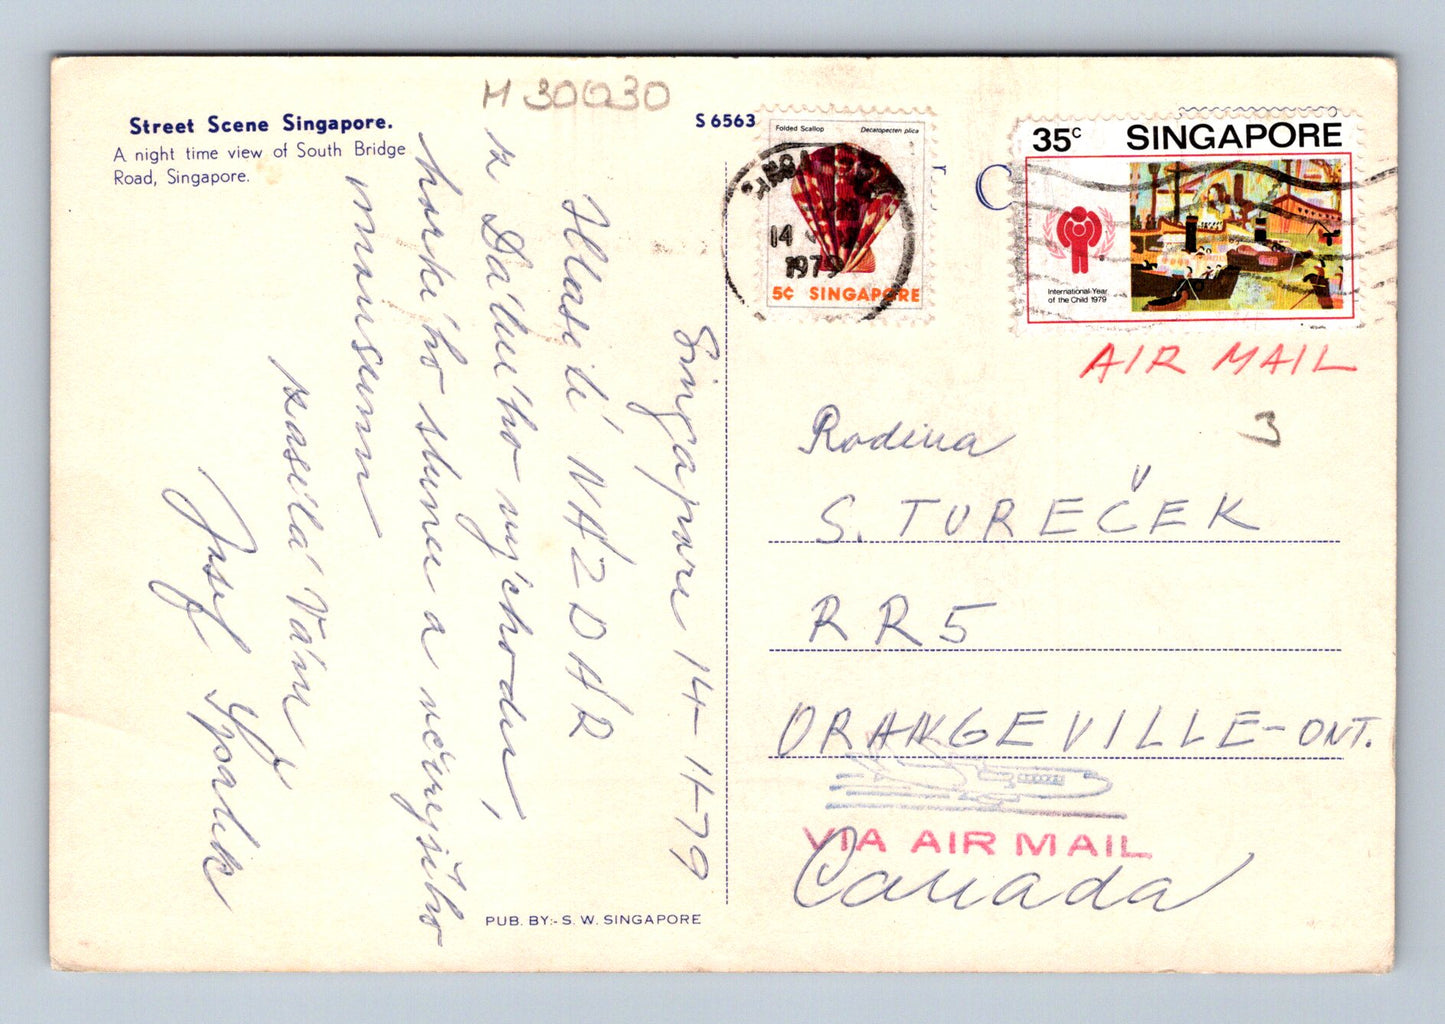 M 30030
Street Scene Singapore.
A night time view of South Bridge
Road, Singapore.
S 6563
Folded Scallop
Decatopecten plica
5¢ SINGAPORE
14
1979
C
35c SINGAPORE
International Year
of the Child 1979
AIR MAIL
3
Singapure 14-11-79
Hlasití NAZDAR
z Dálného východu,
horkého slunce a nečnejšího
monsunu
zasílá Vám
Josef Spalek
Rodina
S. TUREČEK
RR5
ORANGEVILLE-ONT.
VIA AIR MAIL
Canada
PUB. BY:- S. W. SINGAPORE